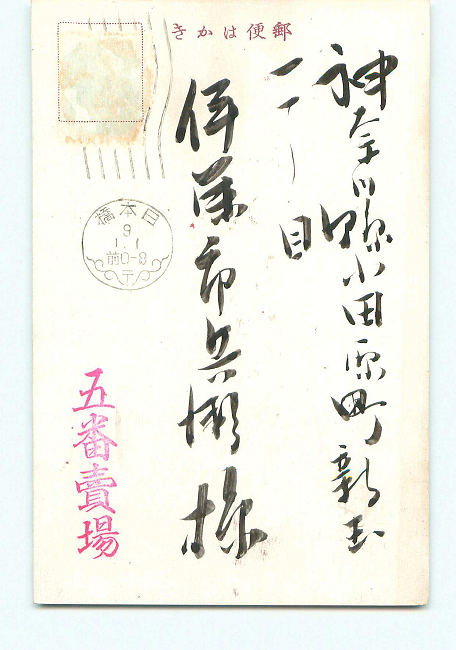 郵便はかき
神奈川縣小田原町新玉
二丁目
伊藤市兵衛様
日本橋
9
1.1
前0-8
五番賣場